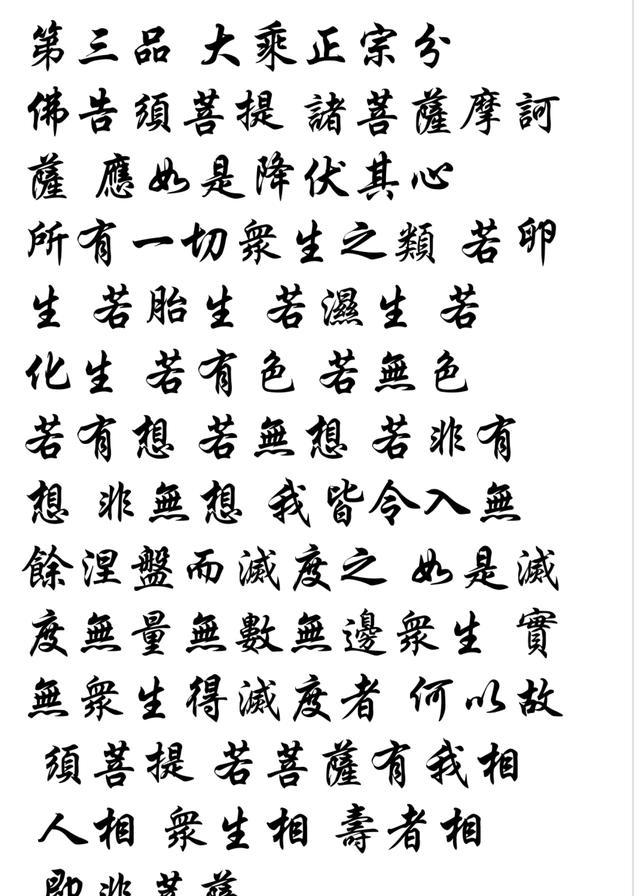 第三品 大乘正宗分
佛告須菩提 諸菩薩摩訶
薩 應如是降伏其心
所有一切眾生之類 若卵
生 若胎生 若濕生 若
化生 若有色 若無色
若有想 若無想 若非有
想 非無想 我皆令入無
餘涅盤而滅度之 如是滅
度無量無數無邊眾生 實
無眾生得滅度者 何以故
須菩提 若菩薩有我相
人相 眾生相 壽者相
即非菩薩